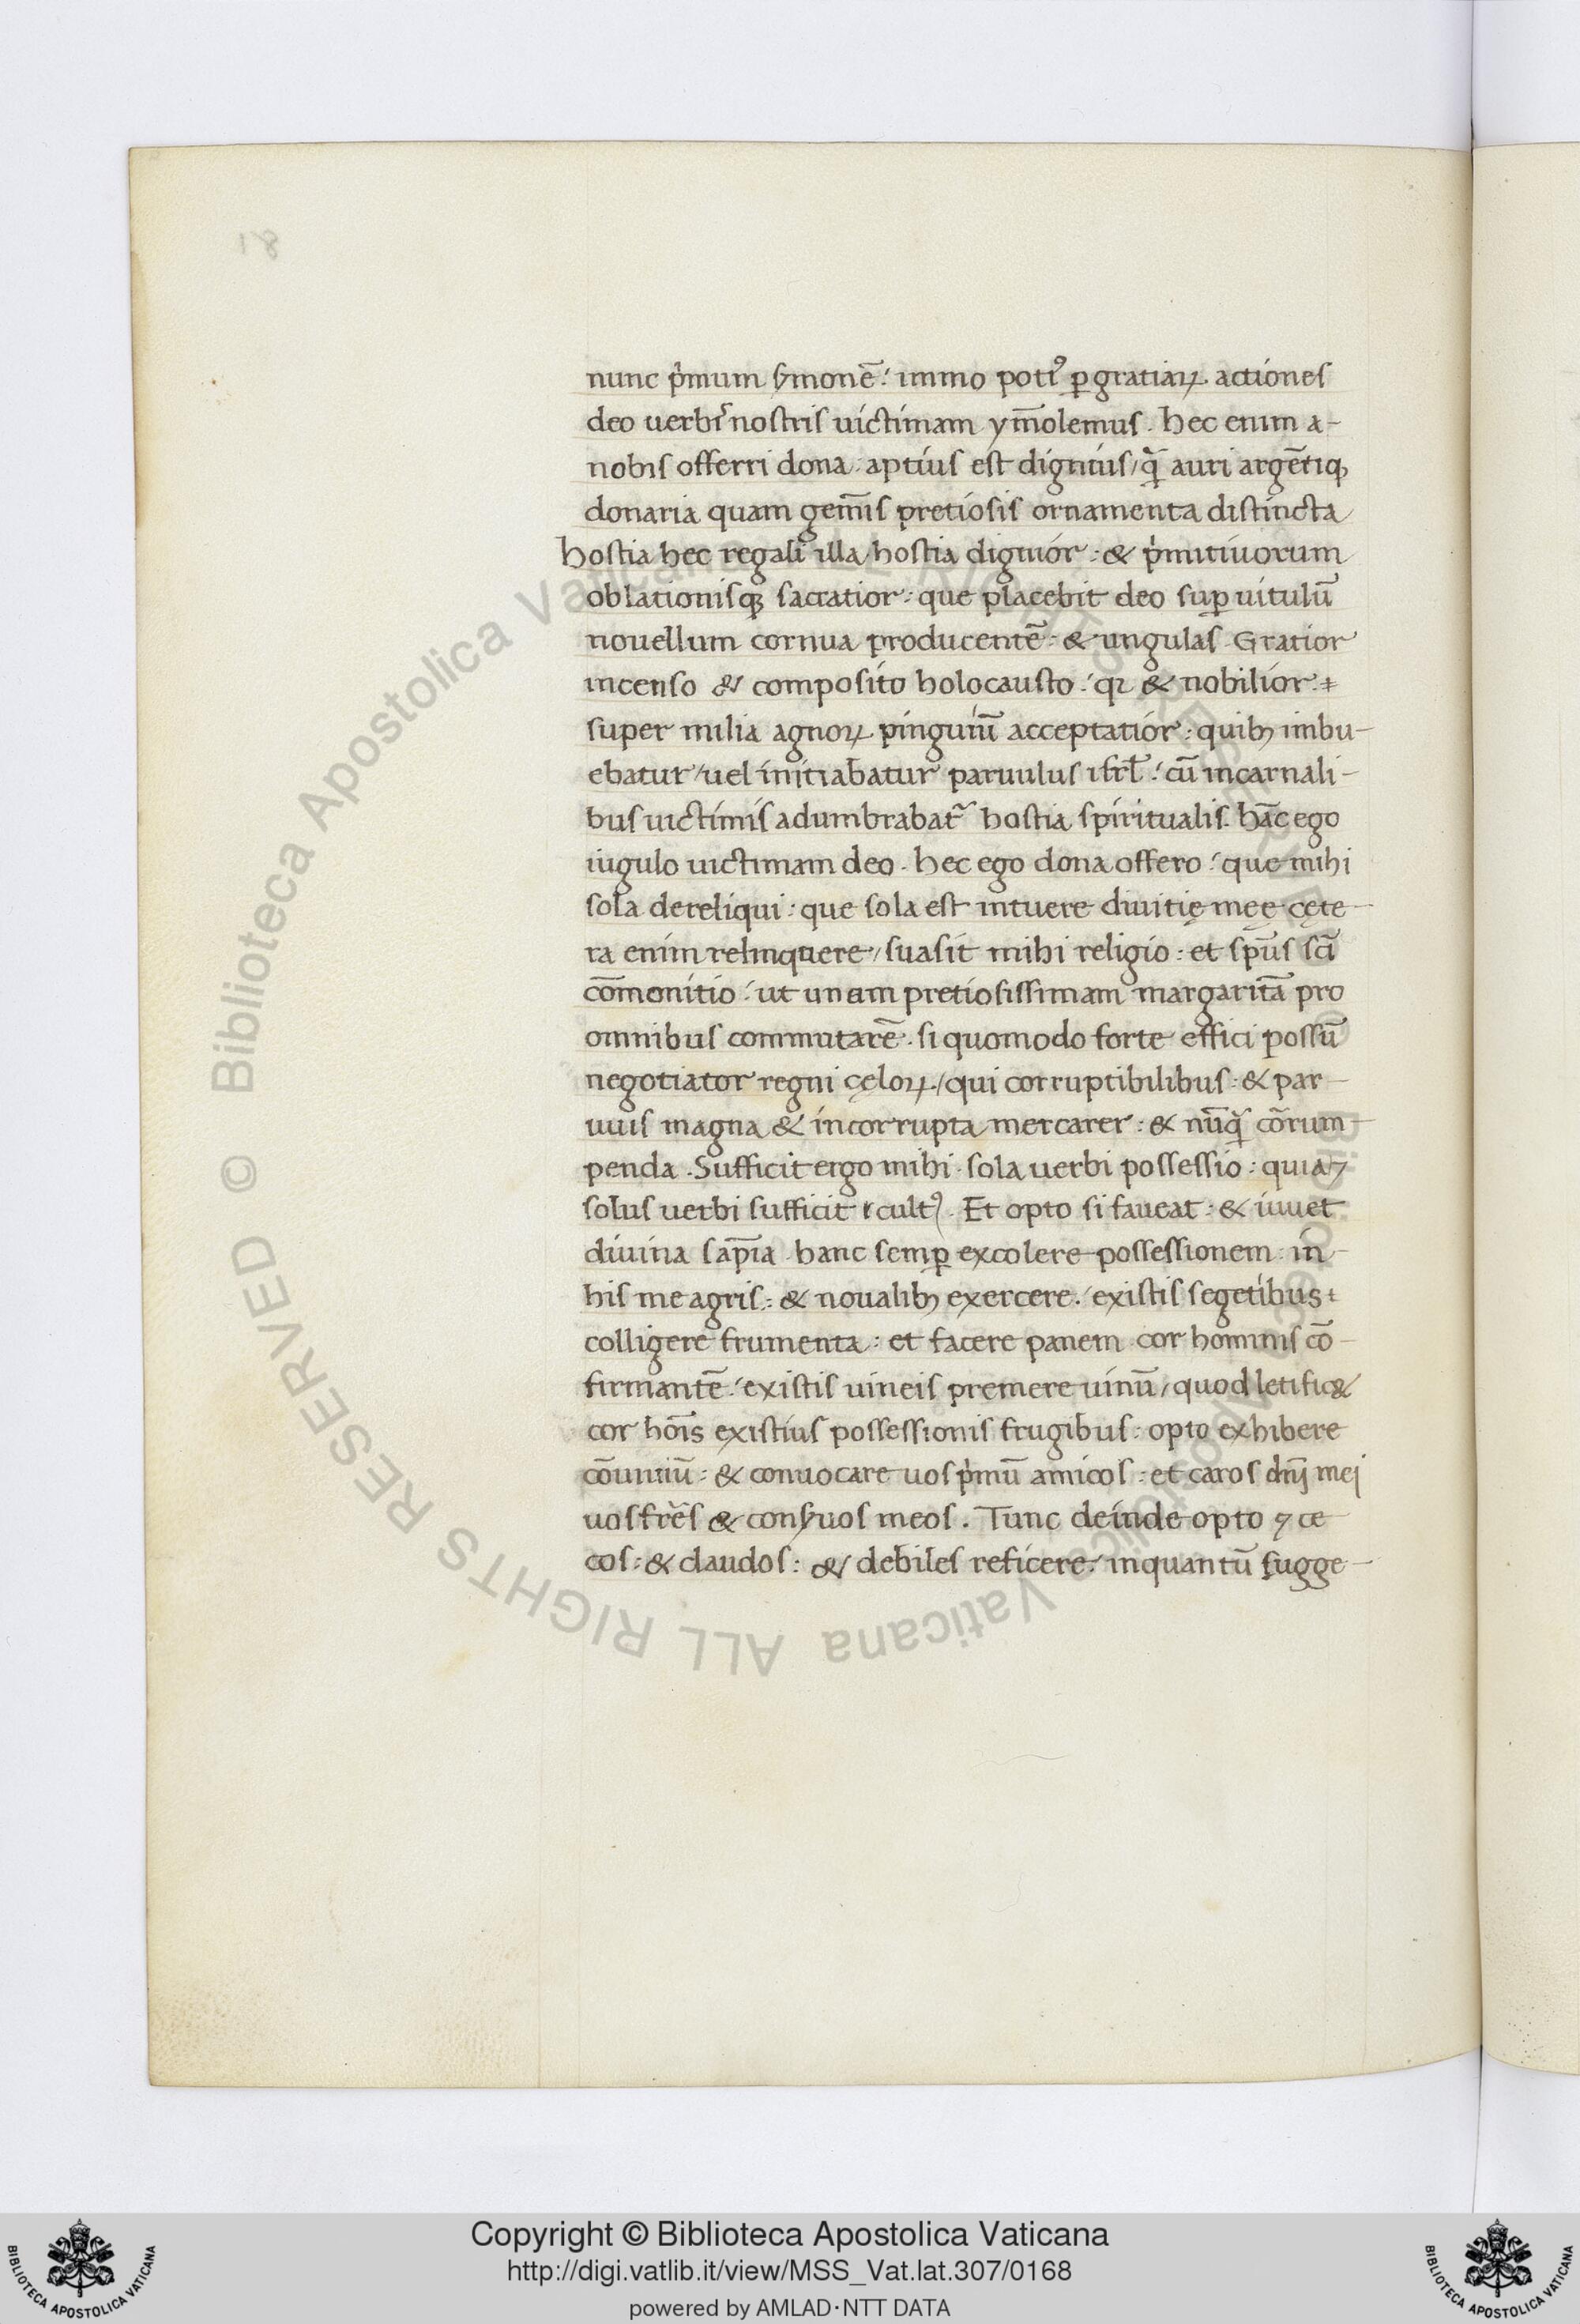 18
nunc p̾mum ẜmonē. immo potiꝰ ꝑ gratiaꝝ actiones
deo uerbis nostris uictimam ym̄olemus. hec enim a-
nobis offerri dona. aptius est dignius / qͣ̃ auri argētiqꝫ
donaria quam gem̄is pretiosis ornamenta distincta
hostia hec regali illa hostia dignior: & p̾mitiuorum
oblationisqꝫ sacratior: que placebit deo suꝑ uitulū
nouellum cornua producentē: & ungulas. Gratior
incenso & composito holocausto. qꝛ & nobilior:
super milia agnoꝝ pinguiū acceptatior: quibꝫ imbu-
ebatur / uel initiabatur paruulus isrł. cū in carnali-
bus uictimis adumbrabat᷑ hostia spiritualis. hāc ego
iugulo uictimam deo. hec ego dona offero. que mihi
sola dereliqui: que sola est intuere diuitię męę. cęte-
ra enim relinquere / suasit mihi religio: et sp̄us sc̄i
com̄onitio. ut unam pretiosissimam margaritā pro
omnibus commutarē. si quomodo forte effici possū
negotiator regni cęloꝝ / qui corruptibilibus: & par-
uuis magna & incorrupta mercarer: & nūqͣ̃ cōrum-
penda. Sufficit ergo mihi sola uerbi possessio: quia ⁊
solus uerbi sufficit cultꝰ. Et opto si faueat: & iuuet
diuina sap̄ia hanc semꝑ excolere possessionem: in-
his me agris: & noualibꝫ exercere. ex istis segetibus
colligere frumenta: et facere panem cor hominis cō-
firmantē. ex istis uineis premere uinū / quod letific&
cor hōis ex istius possessionis frugibus: opto exhibere
cōuiuiū: & conuocare uos p̾mū amicos: et caros dn̄j mej
uos fr̄es & conẜuos meos. Tunc deinde opto ⁊ ce
cos: & claudos: & debiles reficere. in quantū sugge-
Copyright © Biblioteca Apostolica Vaticana
http://digi.vatlib.it/view/MSS_Vat.lat.307/0168
powered by AMLAD·NTT DATA
BIBLIOTECA APOSTOLICA VATICANA
BIBLIOTECA APOSTOLICA VATICANA
© Biblioteca Apostolica Vaticana ALL RIGHTS RESERVED © Biblioteca Apostolica Vaticana ALL RIGHTS RESERVED